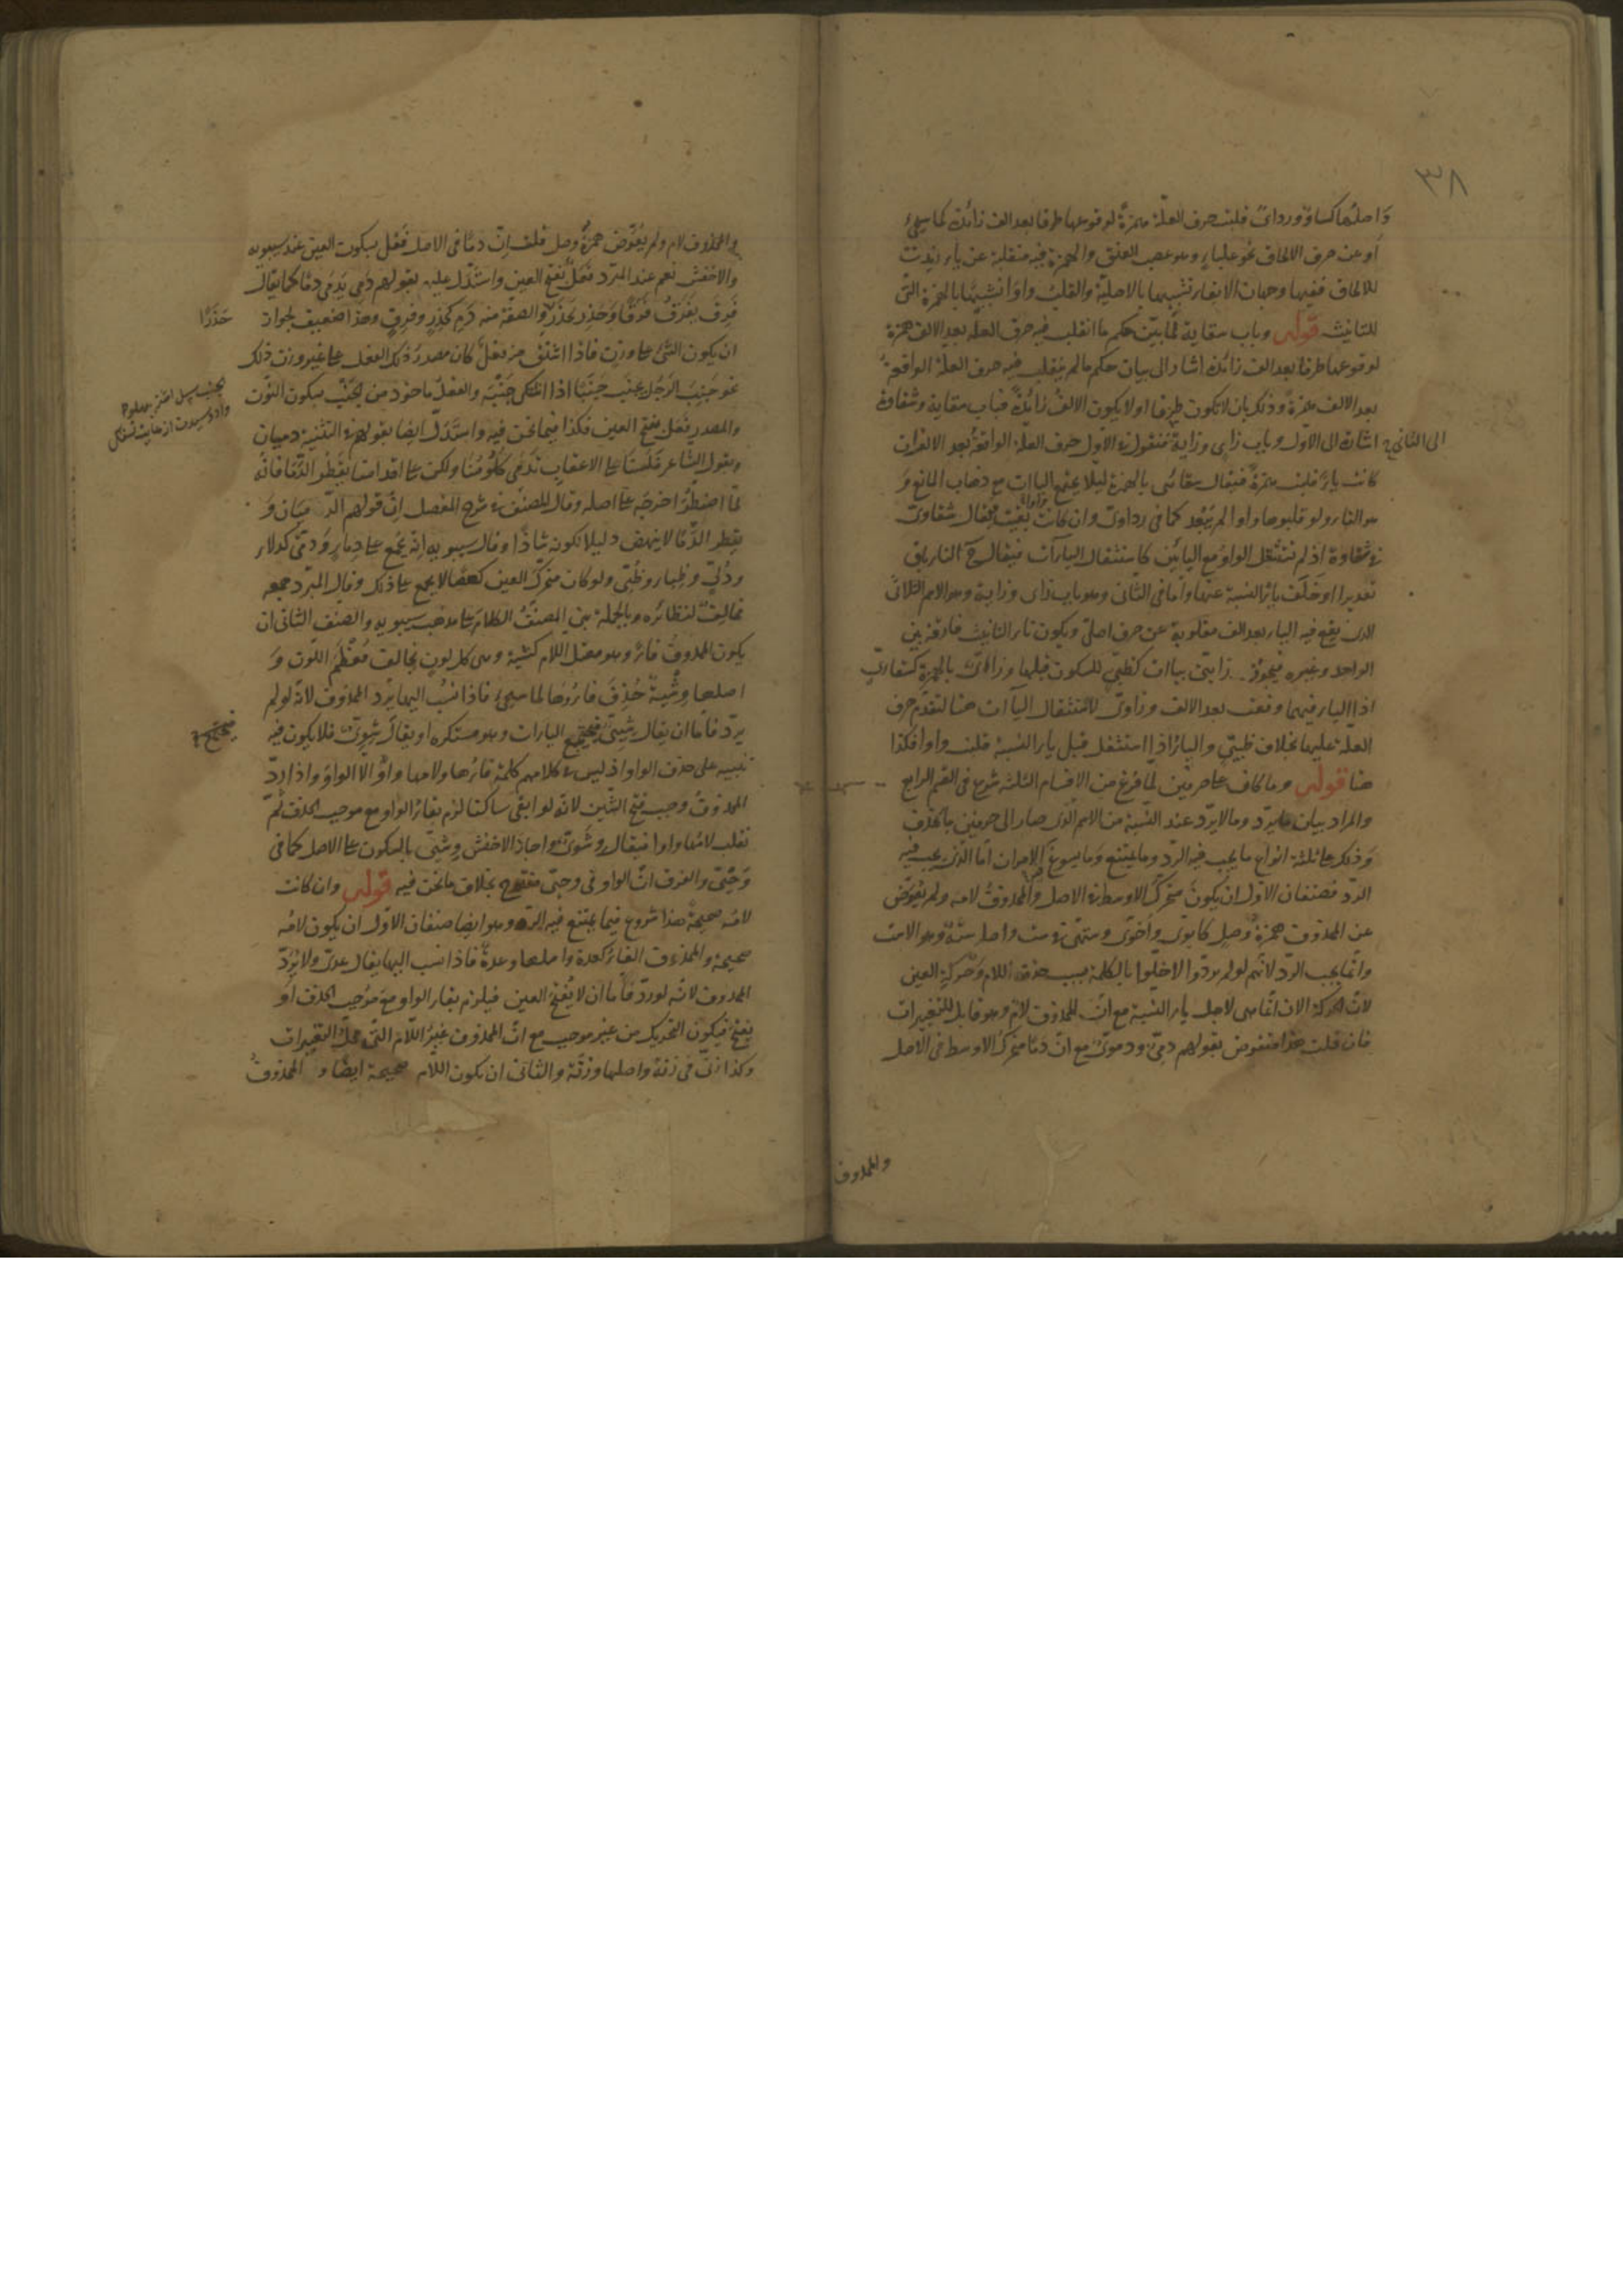 ٣٨
وَاصلهُما كساوٌ ورداىٌ قلبت حرف العلّة همزةً لوقوعها طرفا بعد الف زائدة كما سيجئ
أو عن حرف الالحاق نحو علباءٍ وهو عصب العنق والهمزة فيه منقلبة عن ياء زيدت
للالحاق ففيها وجهان الابقاء تشبيها بالاصليّة والقلب واوا تشبيهًا بالهمزة التى
للتانيث قوله وباب سقاية لمّا بيّن حكم ما انقلب فيه حرف العلّة بعد الالف همزة
لوقوعها طرفا بعد الف زائدة اشار الى بيان حكم ما لم ينقلب فيه حرف العلة الواقعة
بعد الالف همزةً وذلك بان لا تكون طرفا او لا يكون الالفُ زائدةً فباب سقاية وشقاوة
اشارة الى الاوّل وباب زاى وزاية الى الثانى فنقول فى الاول حرف العلّة الواقعة بعد الالف ان
كانت ياءً قلبت همزةً فيقال سقائى بالهمزة ليلا يجتمع الياآت مع ذهاب المانع وَ
هو التاء ولو قلبوها واوا لم يَبْعد كما فى رداوىّ وان كانت واوا بقيت فيقال شقاوىّ
فى شقاوة اذ لم تستثقل الواو مع اليائين كاستثقال الياآت
تقديرا او خَلَفَ ياءُ النسبة عنها وأما فى الثانى وهو باب زاى وزاية وهو الاسم الثلاثى
الذى يقع فيه الياء بعد الف مقلوبة عن حرف اصلىّ ويكون تاء التانيث فارقة بين
الواحد وغيره فيجوز زايىّ بياات كظبيىّ للسكون قبلها وزائىّ بالهمزة كسقائىّ
اذ الياء فيهما وقعت بعد الالف وزاوىّ لاستثقال الياآت هنا لتقدّم حرف
العلّة عليها بخلاف ظبيىّ والياءُ اذا استثقل قبل ياء النسبة قلبت واوا فكذا
هنا قوله وما كان على حرفين لمّا فرغ من الاقسام الثلثة شرع فى القسم الرابع
والمراد بيان ما يردّ وما لا يردّ عند النّسبة من الاسم الّذى صار الى حرفين بالحذف
وَذلك على ثلثة انواع ما يجب فيه الردّ وما يمتنع وما يسوغ فيه الامران أمّا الّذى يجب فيه
الردّ فصنفان الاوّل ان يكون متحركَ الاوسط فى الاصل والمحذوفُ لامه ولم يعوّض
عن المحذوف همزةُ وصلٍ كابوىّ وأخوىّ وستهىّ فى ست واصله سَتَهٌ وهو الاست
وانّما يجب الردّ لانّهم لو لم يردّوا لاخلّوا بالكلمة بسبب حذف اللام وَحركةِ العين
لانّ الحركة الآن انّما هى لاجل ياء النسبة مع انّ المحذوف لامٌ وهو قابل للتغييرات
فان قلت هذا منقوض بقولهم دمىّ ودموىّ مع انّ دمًا متحركُ الاوسط فى الاصل
والمحذوف
والمحذوف لام ولم يُعَوَّض همزةُ وصل قلت انّ دمًا فى الاصل فَعْل بسكون العين عند سيبويه
والاخفش نعم عند المبرّد فَعَلٌ بفتح العين واستدّل عليه بقولهم دَمِىَ يَدْمَى دمًا كما يقال
فَرِقَ يَفْرَقُ فَرَقًا وَحَذِرَ يَحْذَرُ حَذَرًا والصفة منه دَمٍ كحَذِرٍ وفَرِقٍ وهذا ضعيف لجواز
ان يكون الشئ على وزن فاذا اشتق منه فعلٌ كان مصدرُ ذلك الفعل على غير وزن ذلك
نحو جَنِبَ الرَجُل يجنَب جَنَبًا اذا اشتكى جَنْبَه والفعلُ ماخوذ من الجَنْب بسكون النّون
والمصدر فَعَل بفتح العين فكذا فيما نحن فيه واستدّل ايضا بقولهم فى التثنية دميان
وبقول الشاعر فَلَسْنَا على الاعقاب تَدْمَى كُلُومُنَا ولكن على اقدامنا يَقْطُر الدَّمَا فانّه
لمّا اضطُرّ اخرجَه على اصله وقال المصنف فى شرح المفصل إنّ قولهم الدّميان وَ
يقطر الدَّمَا لا ينهض دليلا لكونه شاذًا وقال سيبويه إنّه يجمع على دِماءٍ وَدُمِىّ كدلاءٍ
ودُلِىّ وظِباء وظُبِىّ ولو كان متحركَ العين كعصًا لا يجمع على ذلك وقال المبرّد جمعه
مخالفٌ لنظائره وبالجملة بنى المصنفُ الكلامَ على مذهب سيبويه والصنف الثانى ان
يكون المحذوفُ فاءً وهو معتل اللام كشية وهى كل لونٍ يخالف مُعْظَمَ اللون وَ
اصلها وِشْيَةٌ حُذِفَ فاؤها لما سيجئ فاذا نُسِبَ اليها يردّ المحذوف لانّه لو لم
يردّ فاما ان يقال شِيِىّ فيجتمع الياءات وهو مستكره او يقالَ شِوَوِىّ فلا يكون فيه
تنبيه على حذف الواو اذ ليس فى كلامهم كلمة فاؤها ولامها واوٌ الا الواوُ واذا رُدّ
المحذوفُ وجب فتح الشّين لانّه لو ابقى ساكنا لزم بقاءُ الواو مع موجب الحذف ثم
تقلب لامُها واوا فيقال وِشَوِىّ واجاز الاخفش وِشْيِىّ بالسكون على الاصل كما فى
وَحْيِىّ والفرق انّ الواو فى وحيىّ مفتوح بخلاف ما نحن فيه قوله وان كانت
لامُه صحيحةً هذا شروع فيما يمتنع فيه الردّ وهو ايضا صنفان الاوّل ان يكون لامُه
صحيحة والمحذوف الفاءُ كعدة واصلها وِعدةٌ فاذا نسب اليها يقال عِدىّ ولا يُرَدّ
المحذوف لانّه لو ردّ فأما ان لا تُفتح العين فيلزم بقاء الواو مع مُوجب الحذف أو
يفتحَ فيكون التحريك من غير موجب مع انّ المحذوف غيرُ اللّام الّتى محلّ التغييرات
وكذا زِنىّ فى زنة واصلها وِزنَة والثانى ان يكون اللّام صحيحة ايضًا و المحذوفُ